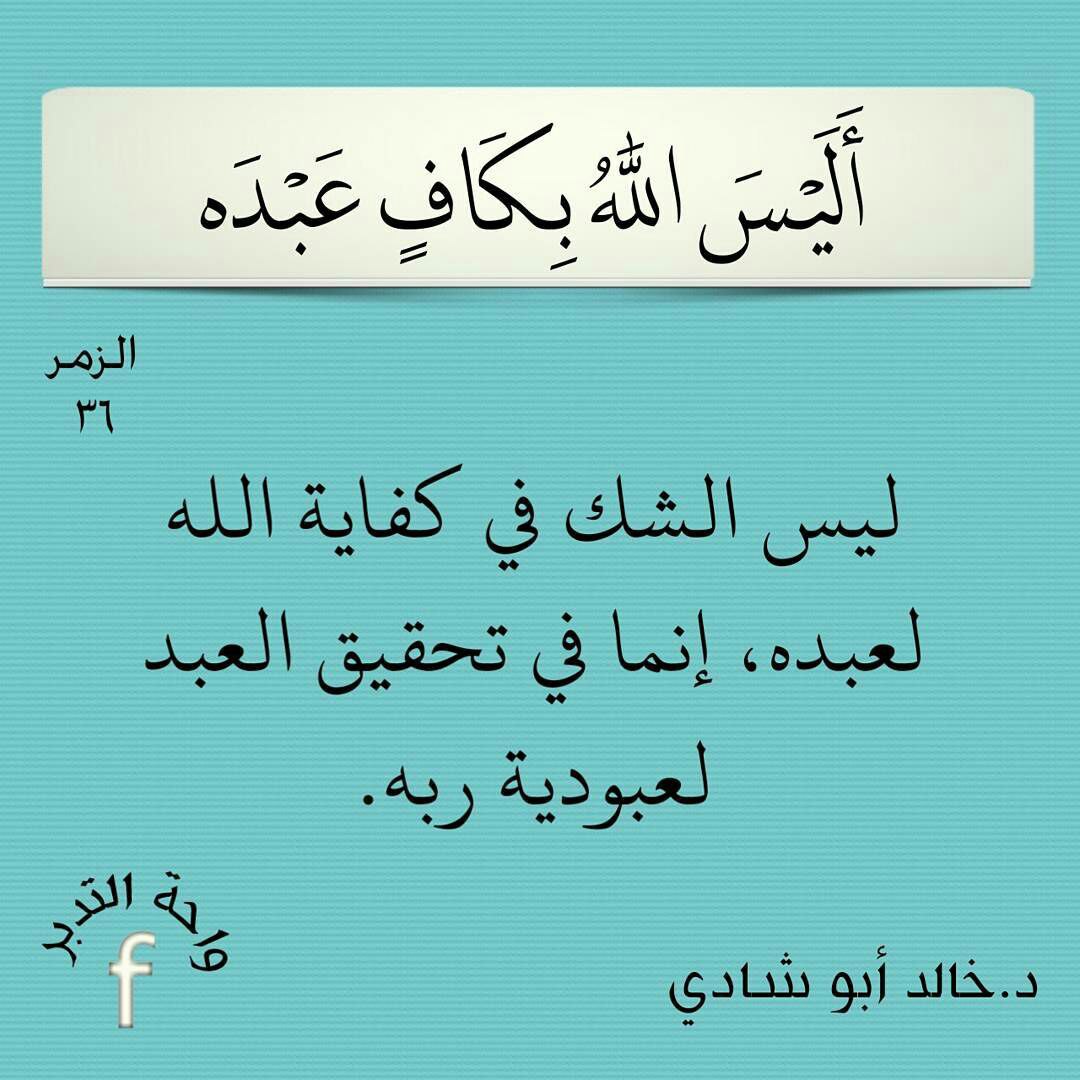 أَلَيْسَ اللَّهُ بِكَافٍ عَبْدَه
الزمر
٣٦
ليس الشك في كفاية الله
لعبده، إنما في تحقيق العبد
لعبودية ربه.
واحة التدبر
f
د.خالد أبو شادي